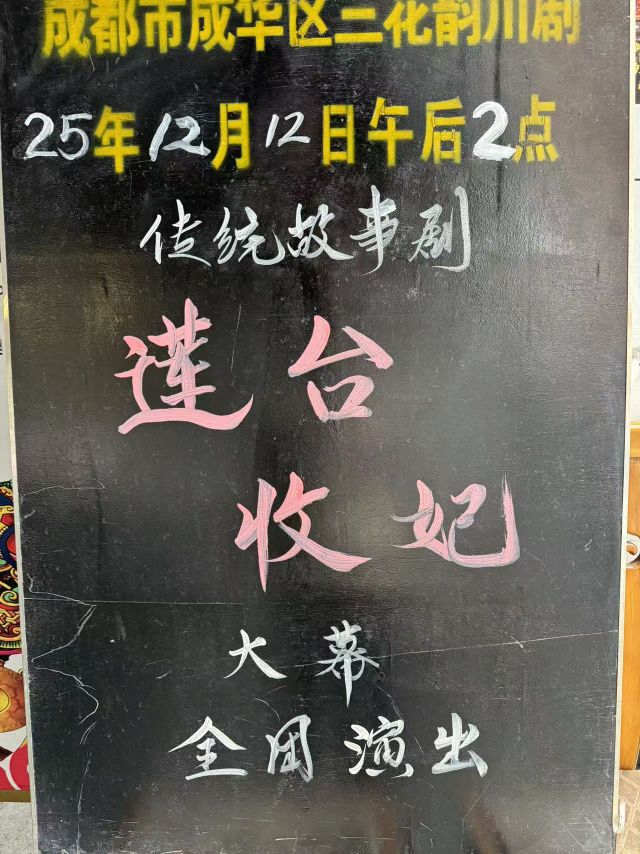 成都市成华区三花韵川剧
25年12月12日午后2点
传统故事剧
莲台
收妃
大幕
全团演出